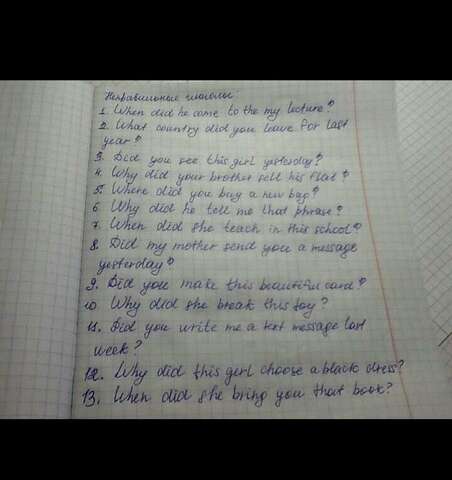 Неправильные глаголы.
1. When did he come to the my lecture?
2. What country did you leave for last
year?
3. Did you see this girl yesterday?
4. Why did your brother sell his flat?
5. Where did you buy a new bag?
6. Why did he tell me that phrase?
7. When did she teach in this school?
8. Did my mother send you a message
yesterday?
9. Did you make this beautiful card?
10. Why did she break this toy?
11. Did you write me a text message last
week?
12. Why did this girl choose a black dress?
13. When did she bring you that book?